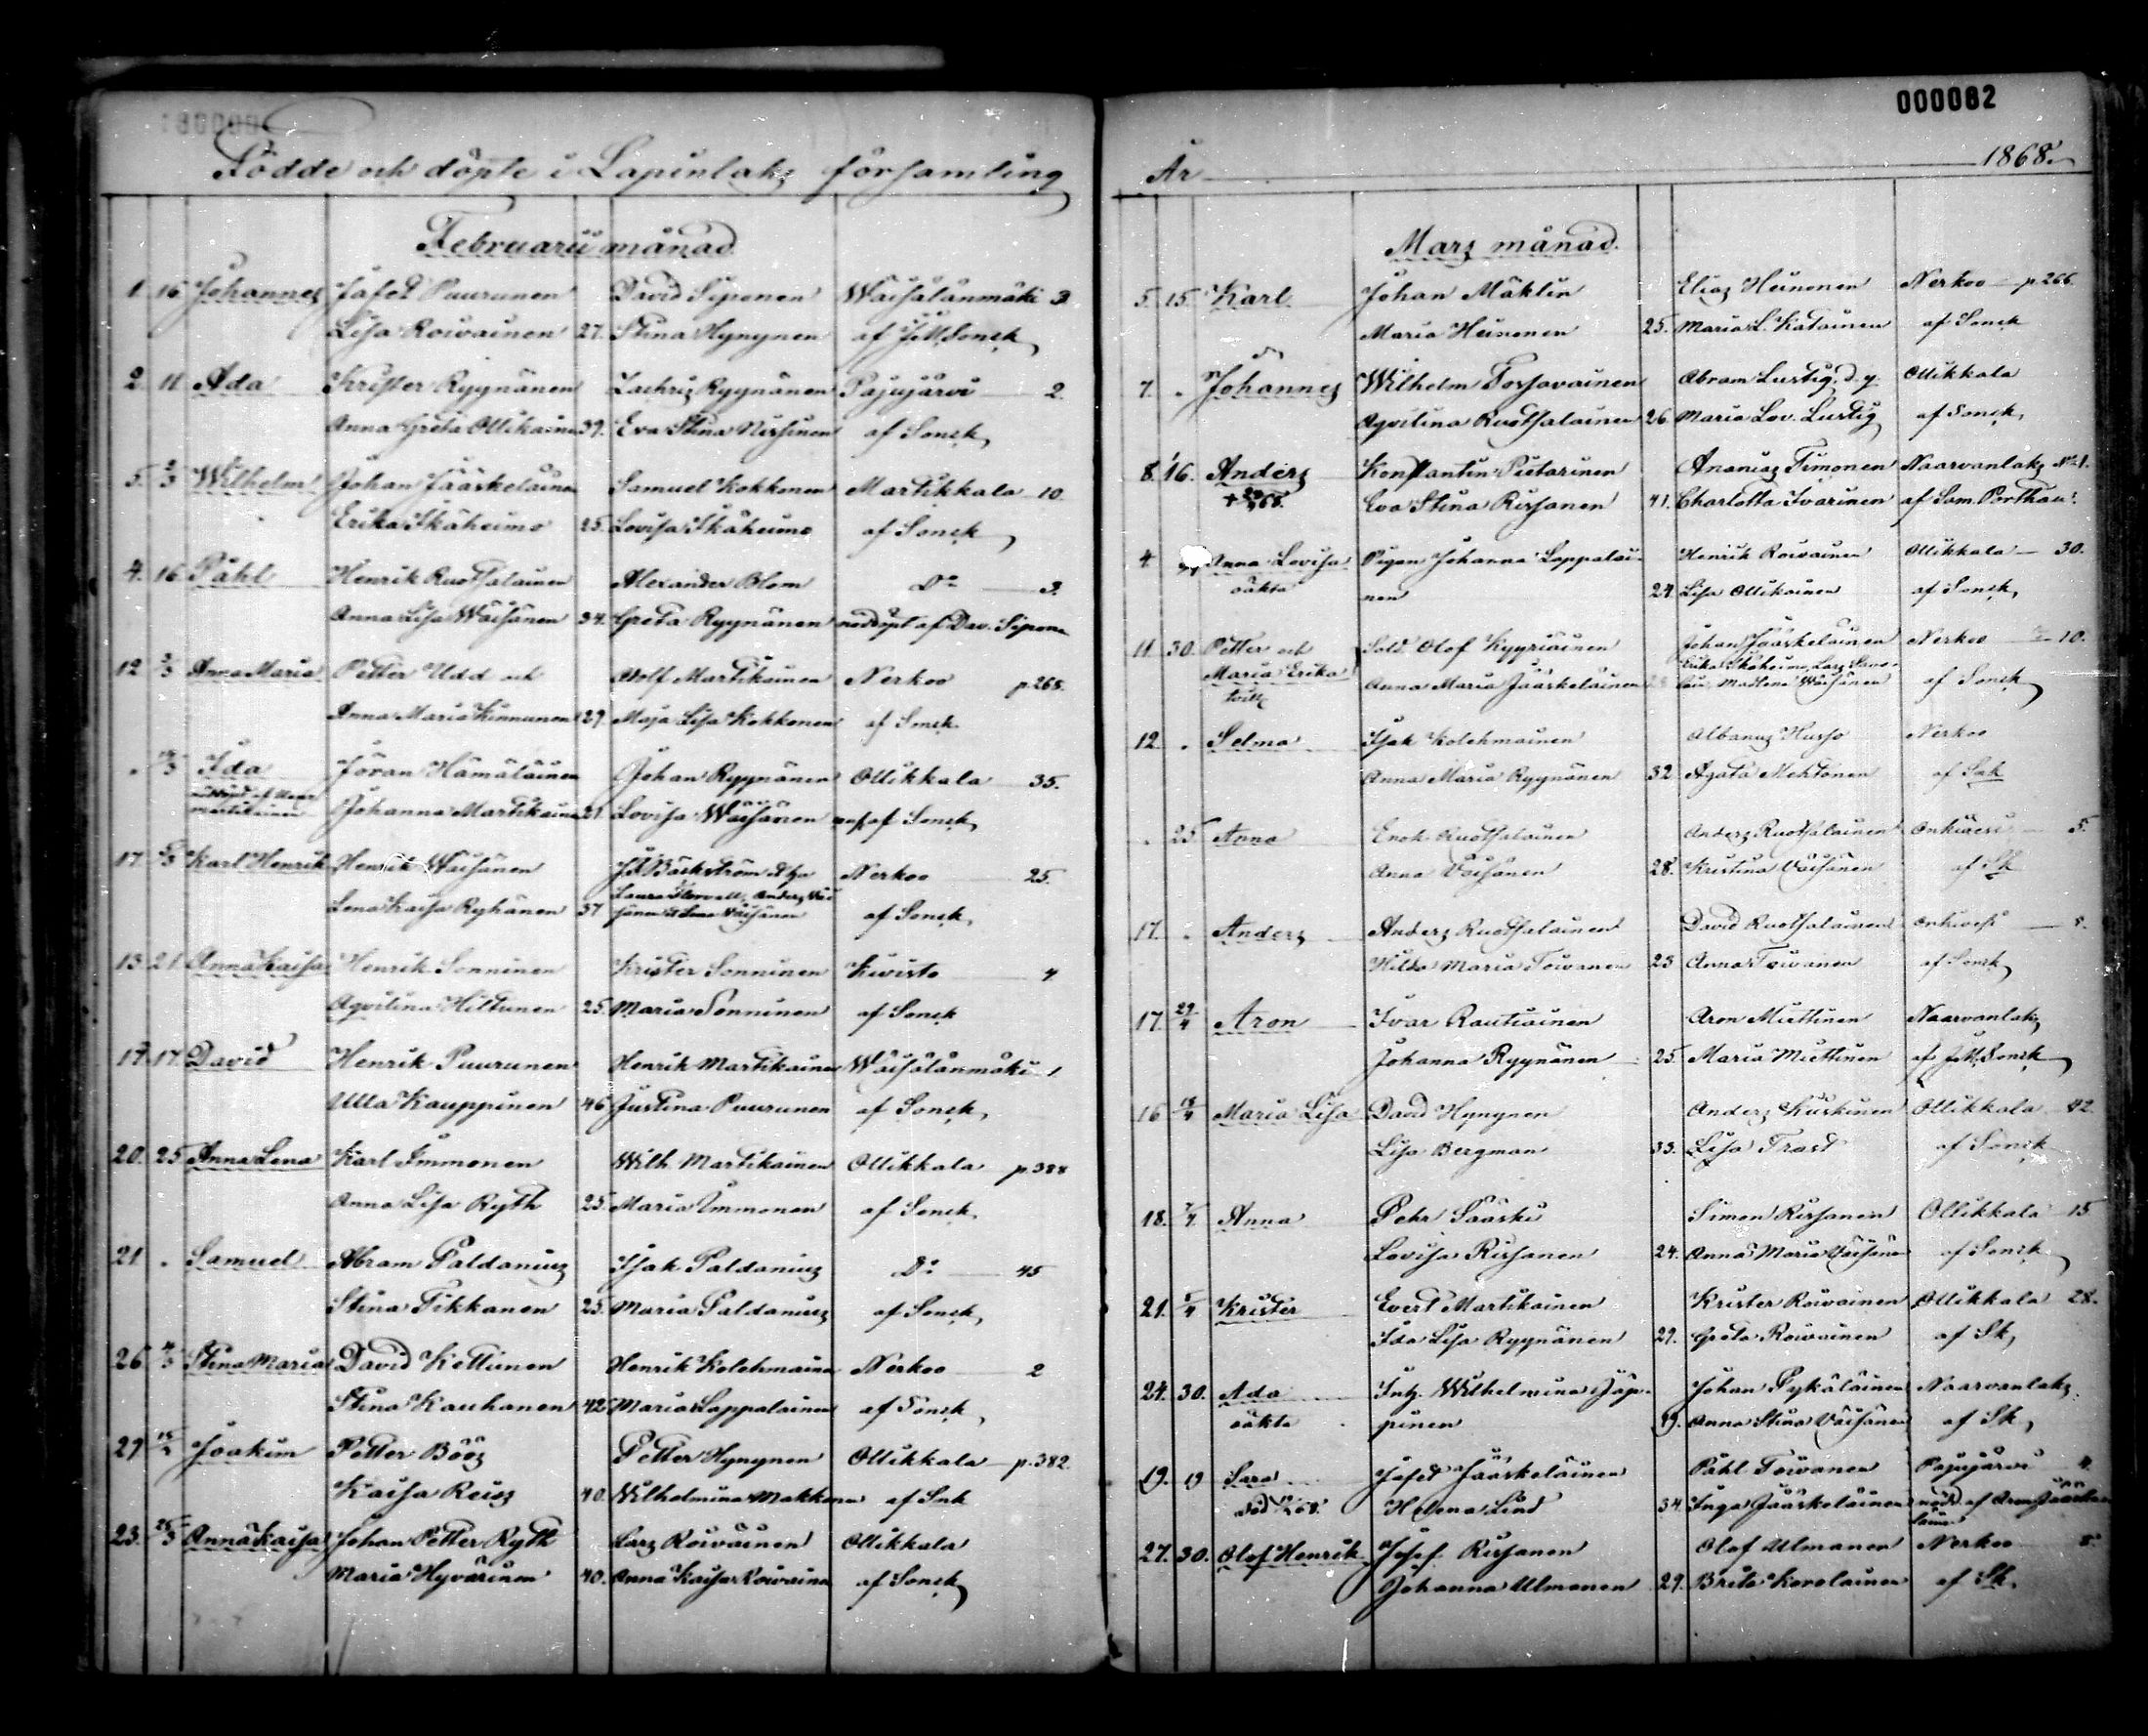 000082
Födde och döpte i Lapinlaks församling
År 1868.
Februarii månad
1. 16 Johannes Jafet Puurunen David Siponen Waisälänmäki 3
Lisa Roivainen 27. Stina Hynynen af J.M. Sonck
2. 11. Ada Krister Ryynänen Zachris Ryynänen Pajujärvi 2.
Anna Greta Ollikaine 39. Eva Stina Nissinen af Sonck
5. 2/3 Wilhelm Johan Jääskeläinen Samuel Kokkonen Martikkala 10.
Erika Skäheimo 25. Lovisa Skäheimo af Sonck
4. 16 Påhl Henrik Ruotsalainen Alexander Blom Do 3.
Anna Lisa Wäisänen 34. Greta Ryynänen nöddöpt af Dav. Sipone
12 2/3 Anna Maria Petter Udd och Adolf Martikainen Nerkoo p. 268.
Anna Maria Kinnunen 29. Maja Lisa Kokkonen af Sonck
" /3 Ida Jöran Hämäläinen Johan Ryynänen Ollikkala 35.
Johanna Martikaine 21. Lovisa Wäisänen af Sonck
17. /3 Karl Henrik Henrik Wäisänen J. Bäckström Nerkoo 25.
Lena Kaisa Ryhänen 37 Laura Anders Väisänen Lena Väisänen af Sonck
13. 21. Anna Kaisa Henrik Sonninen Krister Sonninen Kivistö 4
Aqvilina Hiltunen 25. Maria Sonninen af Sonck
17. 17. David Henrik Puurunen Henrik Martikaine Wäisälänmäki 1
Ulla Kauppinen 46 Justina Puurunen af Sonck
20. 25 Anna Lena Karl Immonen Wilh. Martikainen Ollikkala p. 388
Anna Lisa Ryth 25. Maria Immonen af Sonck
21 " Samuel Abram Paldanius Isak Paldanius Do 45
Stina Tikkanen 25. Maria Paldanius af Sonck
26 4/3 Stina Maria David Kettunen Henrik Kolehmaine Nerkoo 2
Stina Kauhanen 42 Maria Lappalainen af Sonck
29 Joakim Petter Böös Petter Hynynen Ollikkala p. 382.
Kaisa Reis 40. Wilhelmina Makkone af Snk
23. 25/3 Anna Kaisa Johan Petter Ryth Lars Roivainen Ollikkala
Maria Hyvärinen 40. Anna Kaisa Roivaine af Sonck
Mars månad.
5. 15. Karl Johan Mäklin Elias Heinonen Nerkoo p. 266
Maria Heinonen 25. Maria L. Katainen af Sonck
7. " Johannes Wilhelm Torsavainen Abram Lustig. d.y. Ollikkala
Aqvilina Ruotsalainen 26. Maria Lov. Lustig af Sonck
8. 16. Anders Konstantin Pietarinen Ananias Timonen Naarvanlaks No 1.
Eva Stina Rissanen 41. Charlotta Ivarinen af Sam. Porthan.
4. Anna Lovisa Pigan Johanna Lappalai- Henrik Roivainen Ollikkala 30.
oäkta nen 24. Lisa Ollikainen af Sonck
11. 30. Petter och Sold. Olof Kyyriäinen Johan Jääskeläinen Nerkoo 10.
Maria Erika Anna Maria Jääskeläinen Erika Skäheimo, Lars Madlena Wäisänen af Sonck
tvill.
12. " Selma Isak Kolehmainen Albanus Husso Nerkoo
Anna Maria Ryynänen 32 Agata Mehtonen af Snk
" 25. Anna Enok Ruotsalainen Anders Ruotsalainen Onkivesi 5.
Anna Väisänen 28. Kristina Väisänen af Sk
17. " Anders Anders Ruotsalainen David Ruotsalainen Onkivesi
Hilda Maria Toivanen 23 Anna Toivanen af Sonck
17. 29/4 Aron Ivar Rautiainen Aron Miettinen Naarvanlaks
Johanna Ryynänen 25. Maria Miettinen af J.M. Sonck
16 /4 Maria Lisa David Hynynen Anders Kuskinen Ollikkala 42.
Lisa Bergman 33. Lisa Trast af Sonck
18. /4 Anna Pehr Sääski Simon Rissanen Ollikkala 15
Lovisa Rissanen 24. Anna Maria Väisäne af Sonck
21. 5/4 Krister Evert Martikainen Krister Roivainen Ollikkala 28.
Ida Lisa Ryynänen 29. Greta Roivainen af Sk
24. 30. Ada Inh. Wilhelmina Jäp- Johan Pykäläinen Naarvanlaks
oäkta pinen 29. Anna Stina Väisänen af Sk
19. 19 Sara Jafet Jääskeläinen Påhl Toivanen Pajujärvi 4.
död Helena Lind 34. Inga Jääskeläinen nödd. af Aron Jääske-
läinen
27. 30. Olof Henrik Josef Rissanen Olof Ulmanen Nerkoo 8
Johanna Ulmanen 29. Brita Korolainen af Sk.